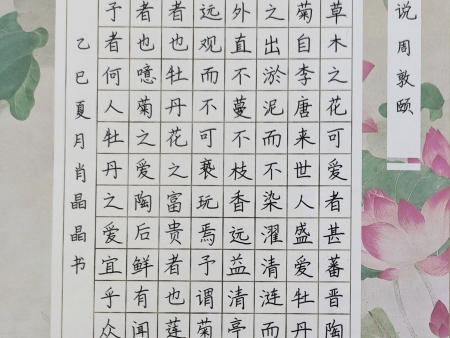 说 周敦颐
草木之花可爱者甚蕃晋陶
菊自李唐来世人盛爱牡丹
之出淤泥而不染濯清涟而
外直不蔓不枝香远益清亭
远观而不可亵玩焉予谓菊
者也牡丹花之富贵者也莲
者也噫菊之爱陶后鲜有闻
予者何人牡丹之爱宜乎众
乙巳夏月肖晶晶书